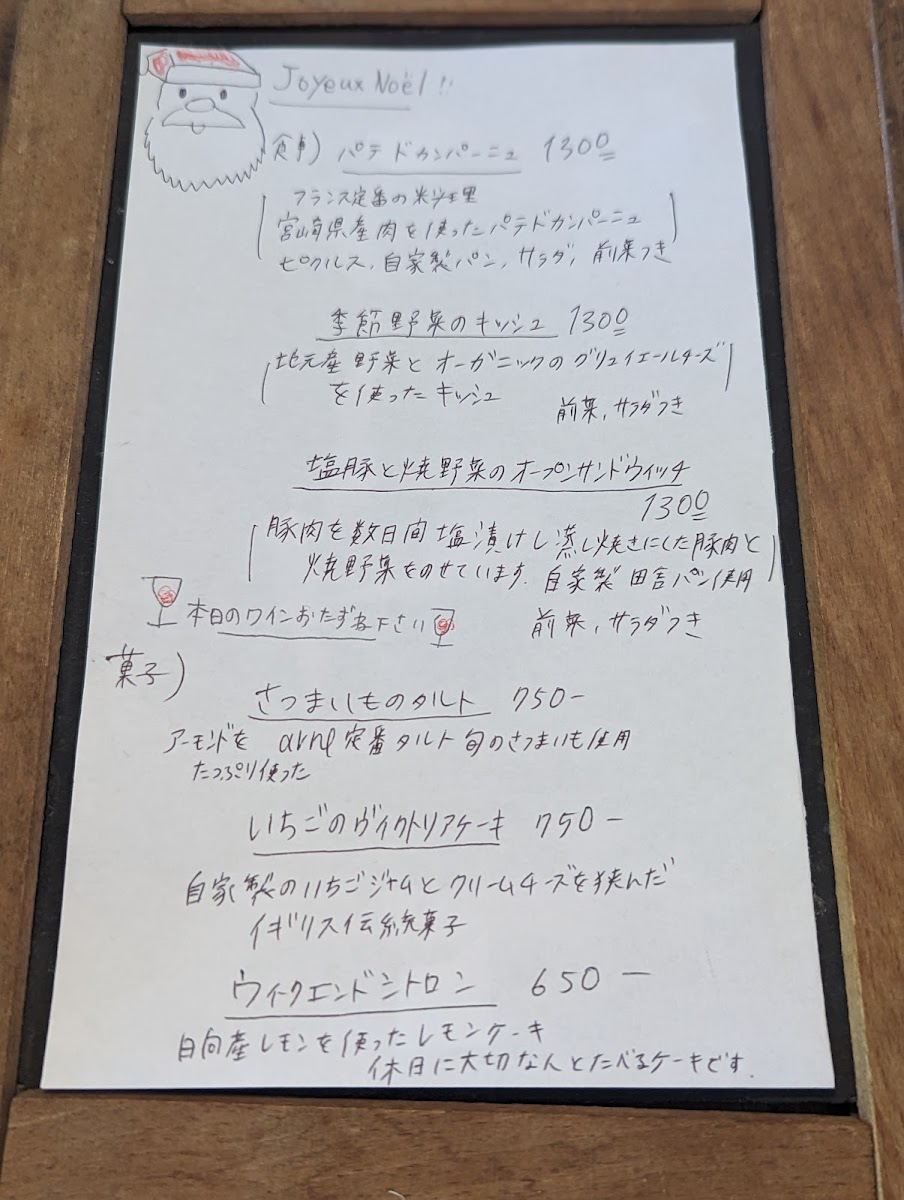 Joyeux Noël!!
食事) パテドカンパーニュ 1300
フランス定番の米料理
宮崎県産肉を使ったパテドカンパーニュ
ピクルス、自家製パン、サラダ、前菜つき
季節野菜のキッシュ 1300
地元産野菜とオーガニックのグリュイエールチーズ
を使ったキッシュ
前菜、サラダつき
塩豚と焼野菜のオープンサンドウィッチ
1300
豚肉を数日間塩漬けし蒸し焼きにした豚肉と
焼野菜をのせています。自家製田舎パン使用
本日のワインおたずね下さい
前菜、サラダつき
菓子)
さつまいものタルト 750-
アーモンドを
たっぷり使った
定番タルト 旬のさつまいも使用
いちごのヴィクトリアケーキ 750-
自家製のいちごジャムとクリームチーズを挟んだ
イギリス伝統菓子
ウィークエンドシトロン 650-
日向産レモンを使ったレモンケーキ
休日に大切な人とたべるケーキです.